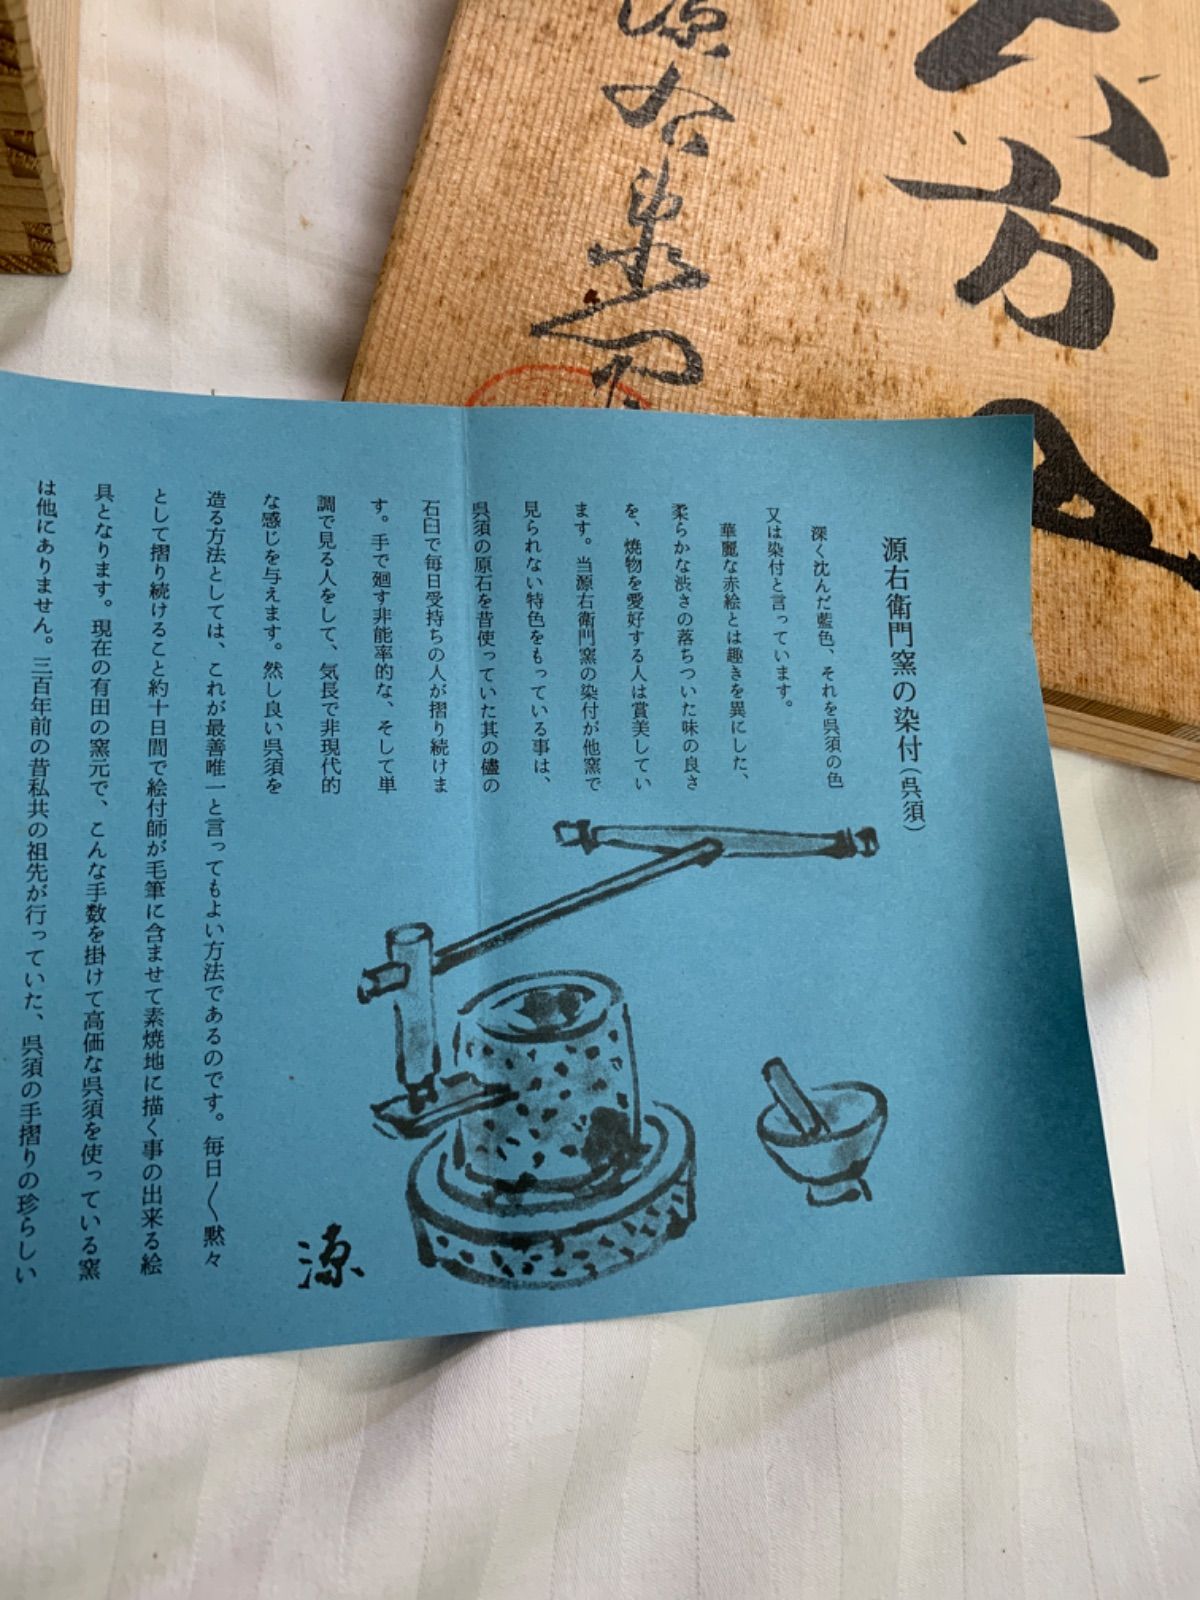 源右衛門窯の染付（呉須）
深く沈んだ藍色、それを呉須の色
又は染付と言っています。
華麗な赤絵とは趣きを異にした、
柔らかな渋さの落ちついた味の良さ
を、焼物を愛好する人は賞美してい
ます。当源右衛門窯の染付が他窯で
見られない特色をもっている事は、
呉須の原石を昔使っていた其の儘の
石臼で毎日受持ちの人が摺り続けま
す。手で廻す非能率的な、そして単
調で見る人をして、気長で非現代的
な感じを与えます。然し良い呉須を
造る方法としては、これが最善唯一と言ってもよい方法であるのです。毎日〱黙々
として摺り続けること約十日間で絵付師が毛筆に含ませて素焼地に描く事の出来る絵
具となります。現在の有田の窯元で、こんな手数を掛けて高価な呉須を使っている窯
は他にありません。三百年前の昔私共の祖先が行っていた、呉須の手摺りの珍らしい
源
六方皿
源右衛門